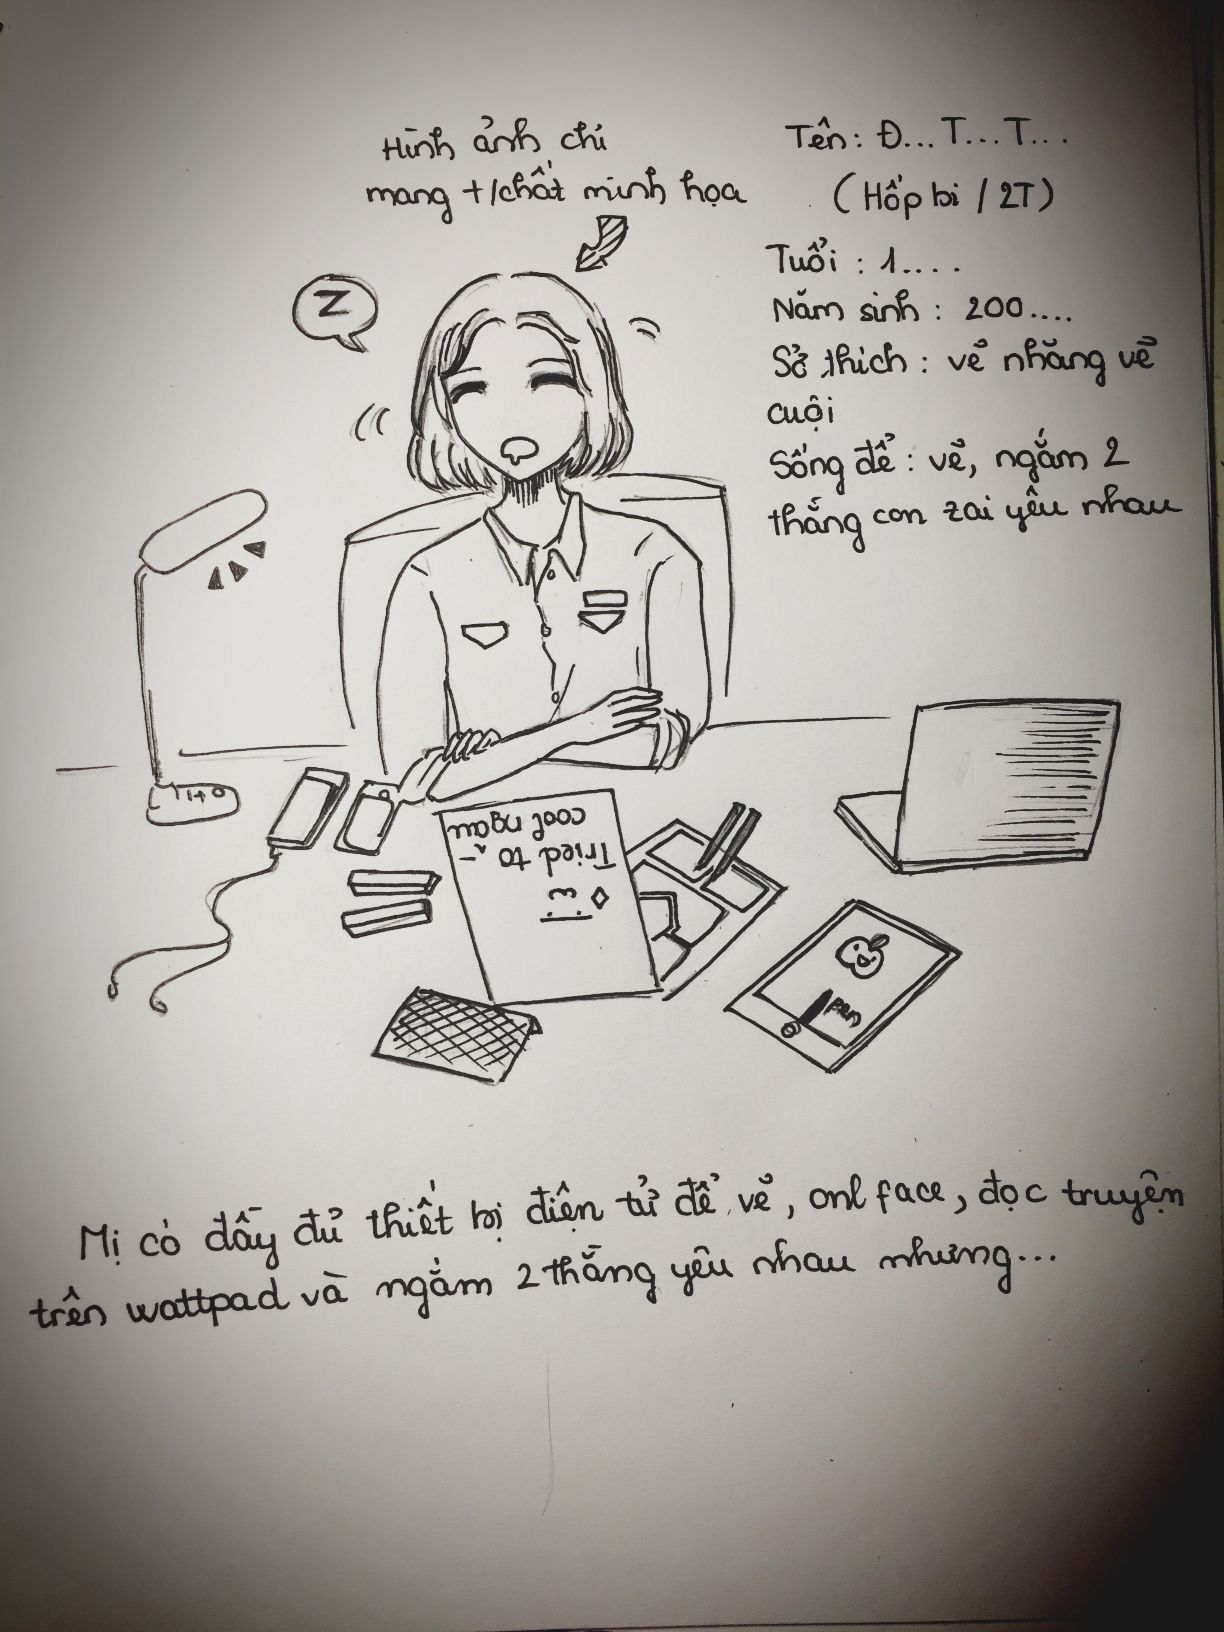 Hình ảnh chỉ
mang t/chất minh họa
Tên: Đ...T...T...
(Hốp bi / 2T)
Tuổi : 1....
Năm sinh : 200....
Sở thích : vẽ nhăng vẽ
cuội
Sống để : vẽ, ngắm 2
thằng con zai yêu nhau
Z
Tried to
cool ngầu
pen
Mị có đầy đủ thiết bị điện tử để vẽ, onl face, đọc truyện
trên wattpad và ngắm 2 thằng yêu nhau nhưng...